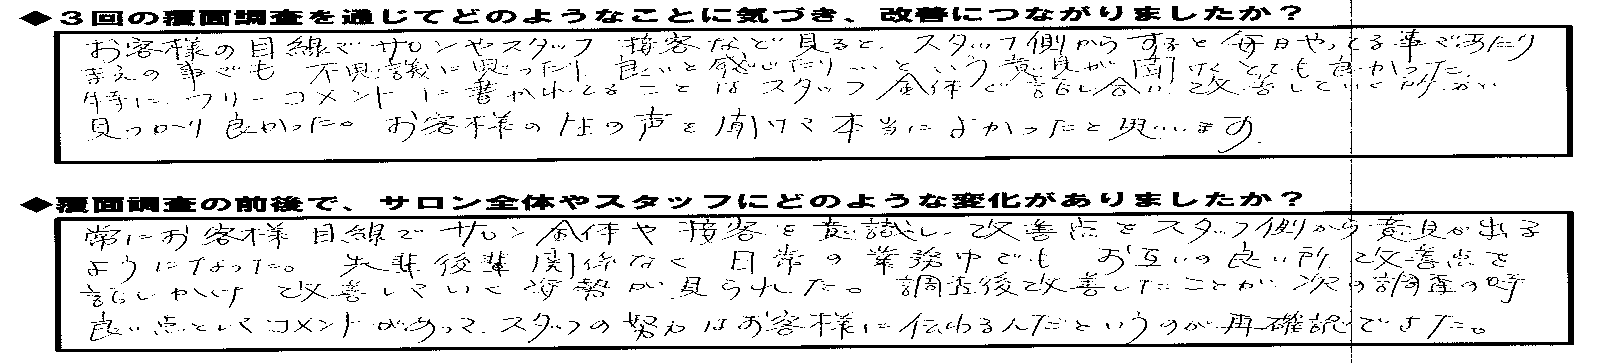 ◆3回の覆面調査を通じてどのようなことに気づき、改善につながりましたか？
お客様の目線でサロンやスタッフ 接客などを見ると、スタッフ側からすると毎日やってる事であたり
まえの事でも 不思議に思ったり 良いと感じたり…という意見が聞けてとても良かった。
特に フリーコメントに書かれてることはスタッフ全体で話し合い改善していく所が
見つかり良かった。お客様の生の声を聞けて本当によかったと思います。
◆覆面調査の前後で、サロン全体やスタッフにどのような変化がありましたか？
常にお客様目線でサロン全体や接客を意識し、改善点をスタッフ側から意見が出る
ようになった。先輩後輩関係なく日常の業務中でもお互いの良い所改善点を
話しかけ 改善していく姿勢が見られた。調査後改善したことが次の調査の時
良い点としてコメントがあって、スタッフの努力はお客様に伝わるんだというのが再確認できた。